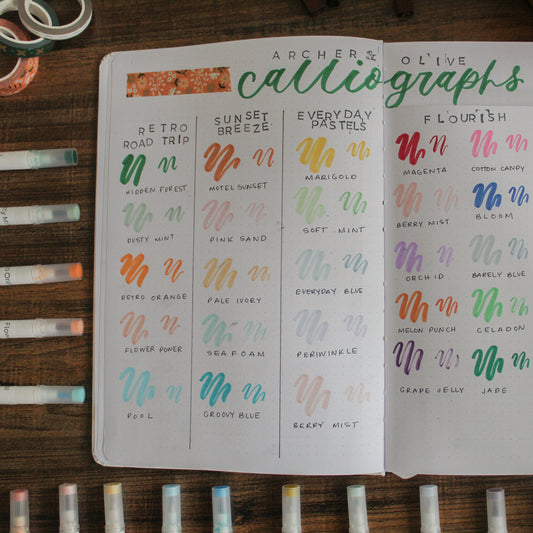 ARCHER & OLIVE
calliographs
RETRO
ROAD TRIP
HIDDEN FOREST
DUSTY MINT
RETRO ORANGE
FLOWER POWER
POOL
SUNSET
BREEZE
MOTEL SUNSET
PINK SAND
PALE IVORY
SEAFOAM
GROOVY BLUE
EVERYDAY
PASTELS
MARIGOLD
SOFT MINT
EVERYDAY BLUE
PERIWINKLE
BERRY MIST
FLOURISH
MAGENTA
COTTON CANDY
BERRY MIST
BLOOM
ORCHID
BARELY BLUE
MELON PUNCH
CELADON
GRAPE JELLY
JADE